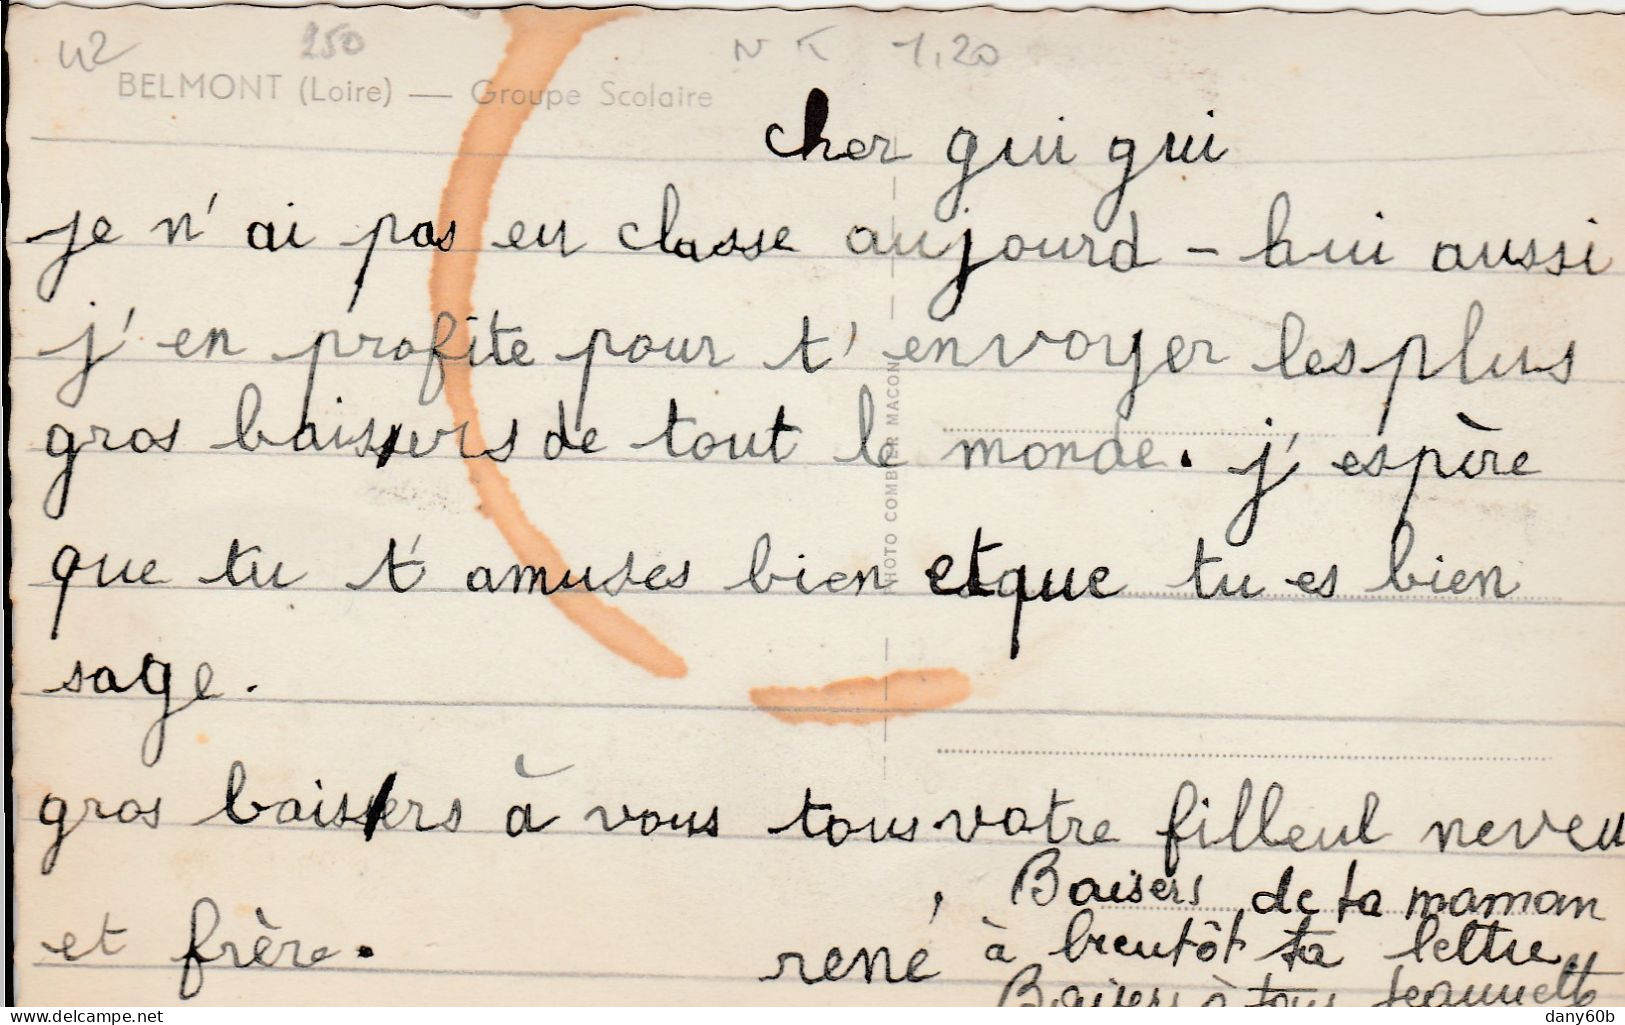 42 250 NT 1,20
BELMONT (Loire) — Groupe Scolaire
cher gui gui
je n'ai pas eu classe aujourd-hui aussi
j'en profite pour t'envoyer les plus
gros baisers de tout le monde. j'espère
que tu t'amuses bien et que tu es bien
sage.
gros baisers à vous tous votre filleul neveu
et frère.
rené
Baisers de ta maman
à bientôt ta lettre.
Baisers à tous Jeannette
PHOTO COMBIER MACON
delcampe.net
dany60b